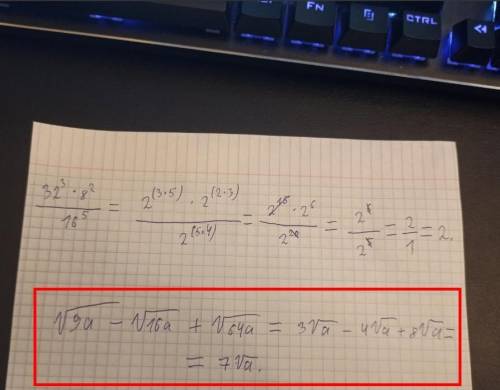 FN
CTRL
32³ · 8² / 16⁵ = 2^(3·5) · 2^(2·3) / 2^(5·4) = 2^15 · 2^6 / 2^20 = = 2/1 = 2.
√9a − √16a + √64a = 3√a − 4√a + 8√a =
= 7√a.